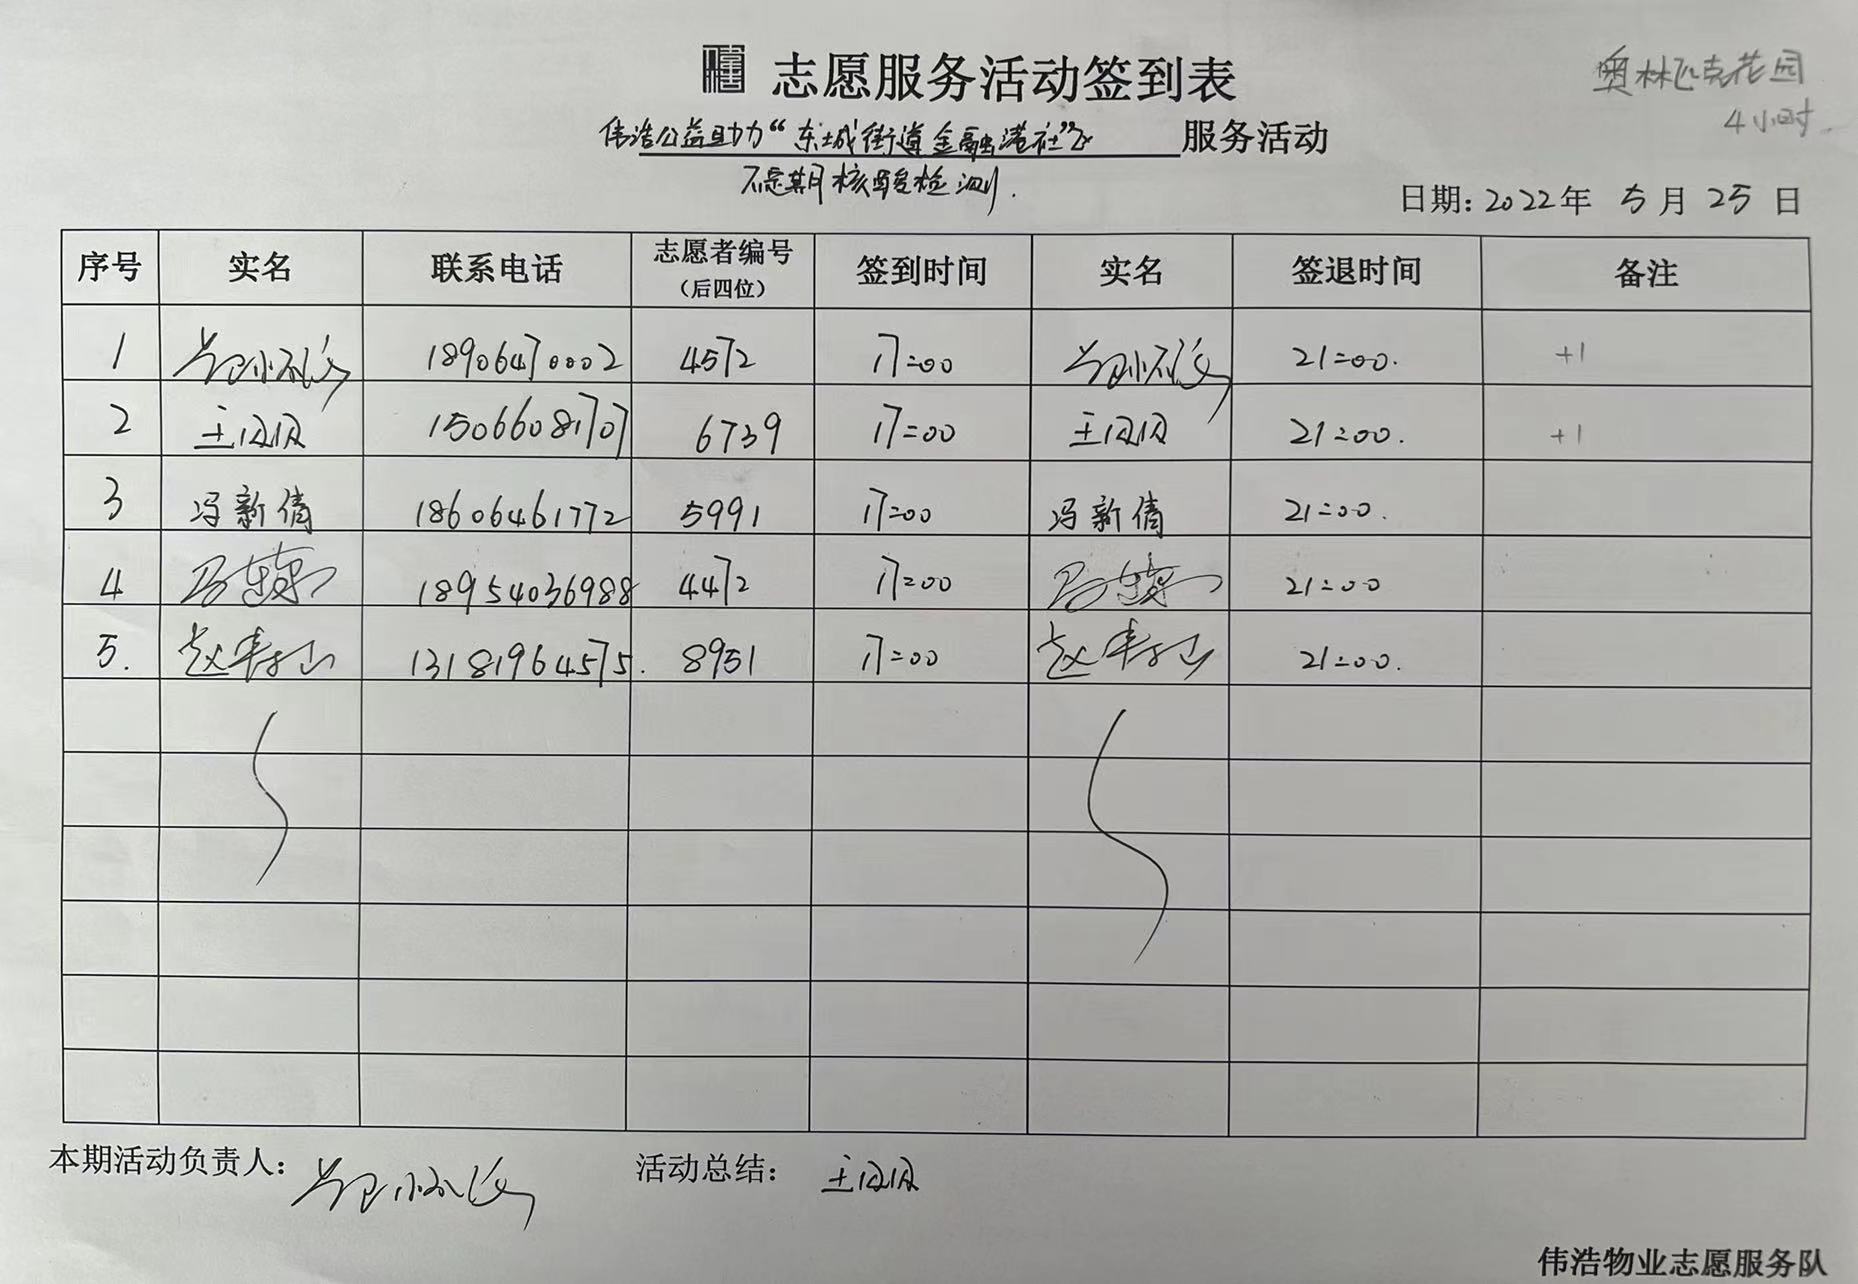 志愿服务活动签到表
奥林匹克花园
4小时
伟浩公益助力“东城街道金融港社”区 服务活动
不定期核酸检测.
日期: 2022年 5月 25日
序号 实名 联系电话 志愿者编号（后四位） 签到时间 实名 签退时间 备注
1 18906470002 4572 17:00 21:00. +1
2 王 15066081707 6739 17:00 王 21:00. +1
3 冯新倩 18606461772 5991 17:00 冯新倩 21:00.
4 18954036988 4472 17:00 21:00
5. 赵 13181964575. 8951 17:00 赵 21:00.
本期活动负责人: 活动总结: 王
伟浩物业志愿服务队